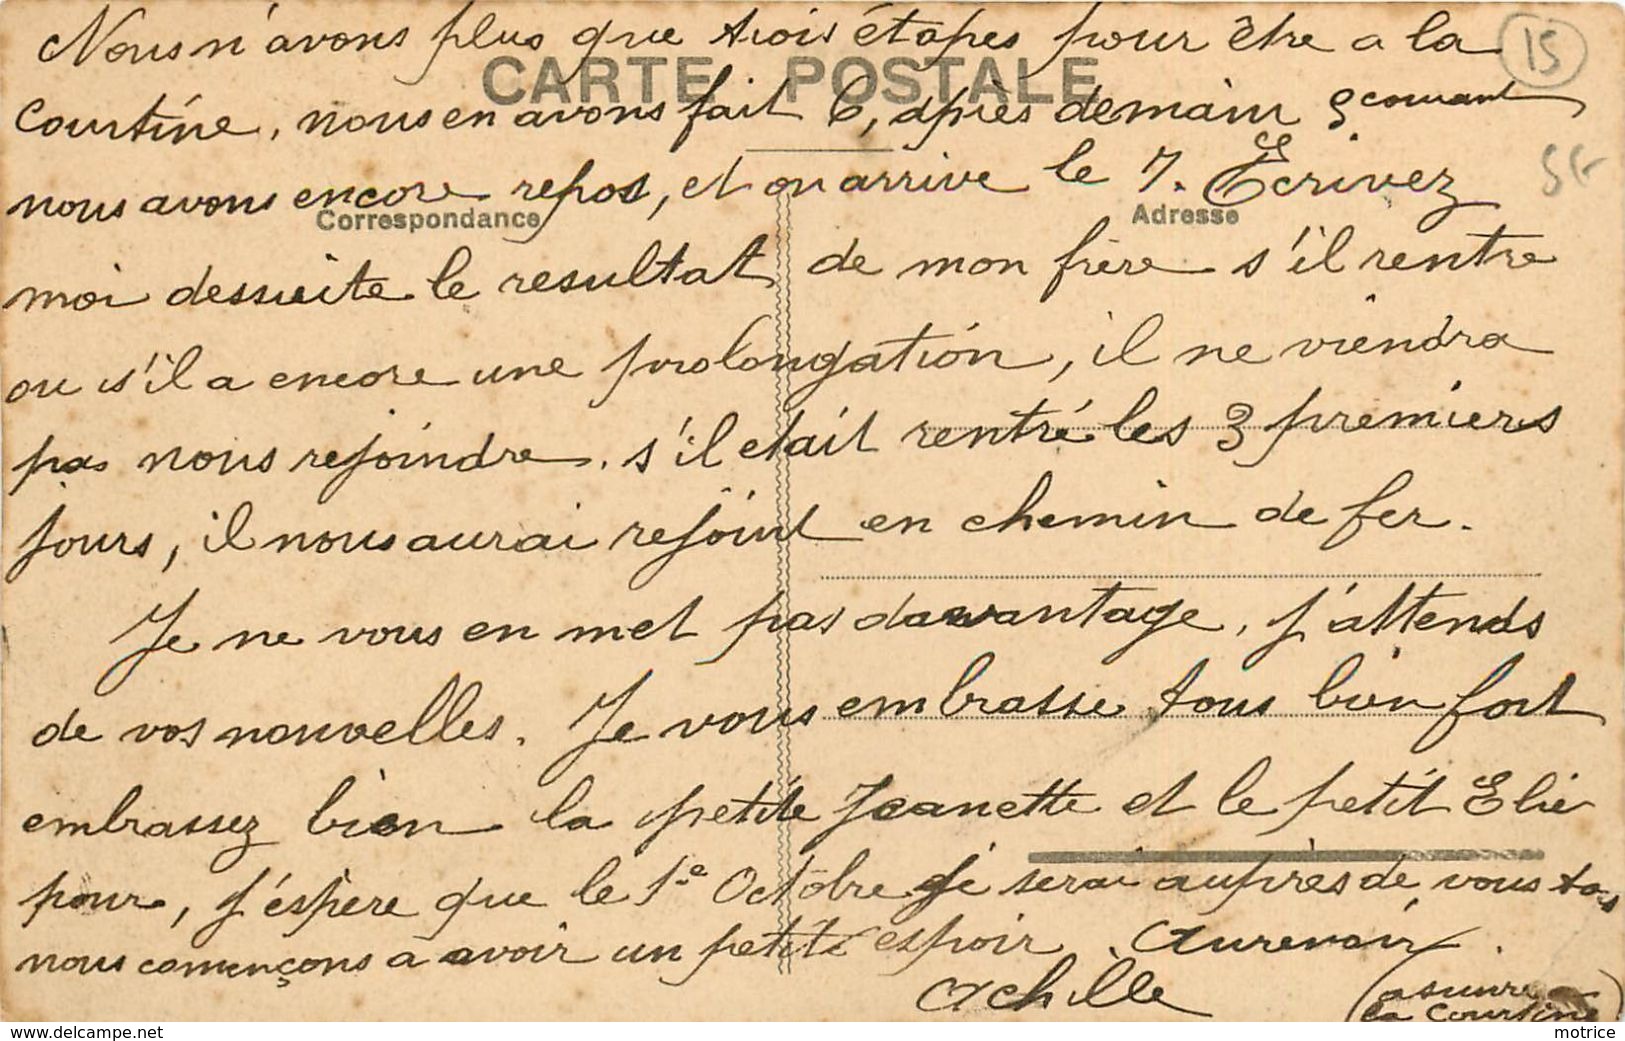 Nous n'avons plus que trois étapes pour être a la
15
CARTE POSTALE
Courtine, nous en avons fait 6, après demain 5 courant
nous avons encore repos, et on arrive le 7. Ecrivez
Correspondance
Adresse
moi dessuite le resultat de mon frère s'il rentre
ou s'il a encore une prolongation, il ne viendra
pas nous rejoindre. s'il etait rentré les 3 premiers
jours, il nous aurai rejoint en chemin de fer.
Je ne vous en met pas davantage, j'attends
de vos nouvelles. Je vous embrasse tous bien fort
embrassez bien la petite Jeanette et le petit Elie
pour, j'éspère que le 1e Octobre je serai auprès de vous tous
nous començons a avoir un petit espoir. Aurevoir.
Achille
(a suivre
la Courtine)
motrice